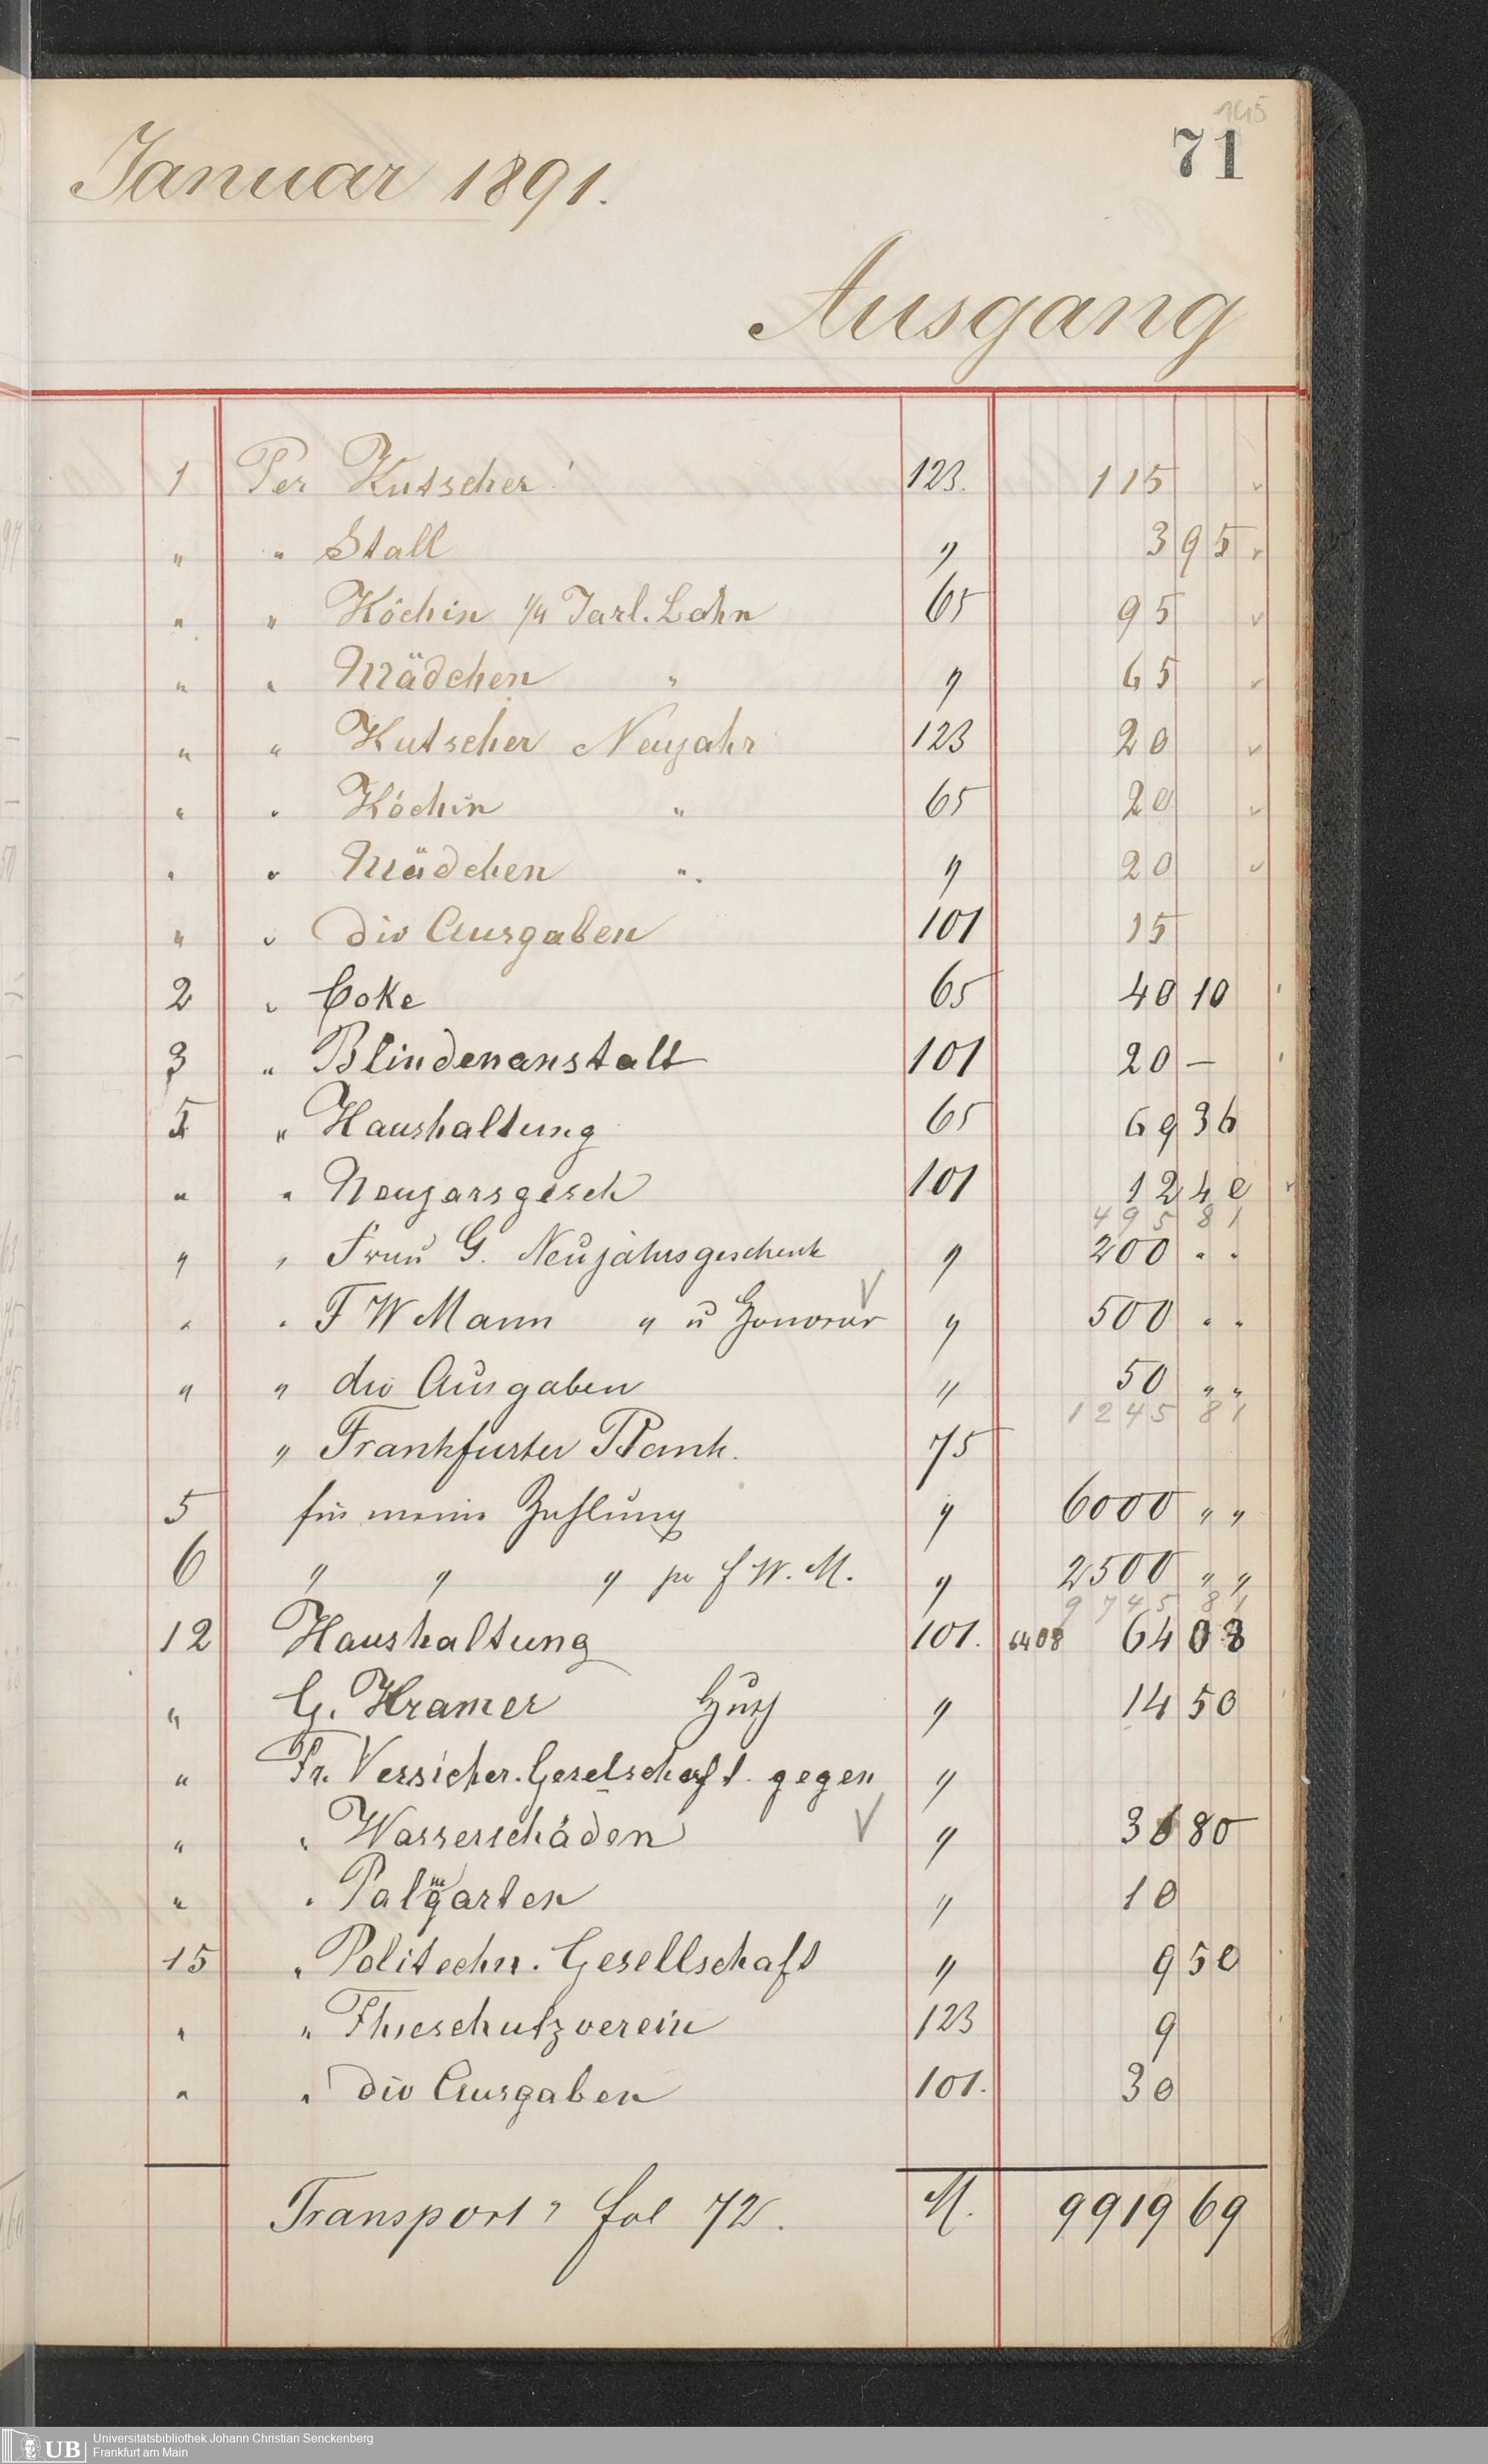 145
71
Januar 1891.
Ausgang
1 Per Kutscher 123. 115
" " Stall " 3 95
" " Köchin 1/4 Jarl. Lohn 65 95
" " Mädchen " " 65
" " Kutscher Neujahr 123 20
" " Köchin " 65 20
" " Mädchen " " 20
" " div Ausgaben 101 15
2 " Coke 65 40 10
3 " Blindenanstalt 101 20 —
5 " Haushaltung 65 69 36
" " Neujarsgesch 101 12 40
495 81
" " Frau G. Neujahrsgeschenk " 200 " "
" " F W Mann " u Honorar " 500 " "
" " div Ausgaben " 50 " "
1245 81
" Frankfurter Bank. 75
5 für meine Zahlung " 6000 " "
6 " " " pr F. W. M. " 2500 " "
9745 81
12 Haushaltung 101. 6408 64 08
" G. Kramer " 14 50
" Fr. Versicher. Geselschaft gegen "
" " Wasserschäden " 36 80
" " Palmgarten " 10
15 " Politechn. Gesellschaft " 9 50
" " Thieschutzverein 123 9
" " div Ausgaben 101. 30
Transport fol 72. M. 9919 69
UB Universitätsbibliothek Johann Christian Senckenberg
Frankfurt am Main